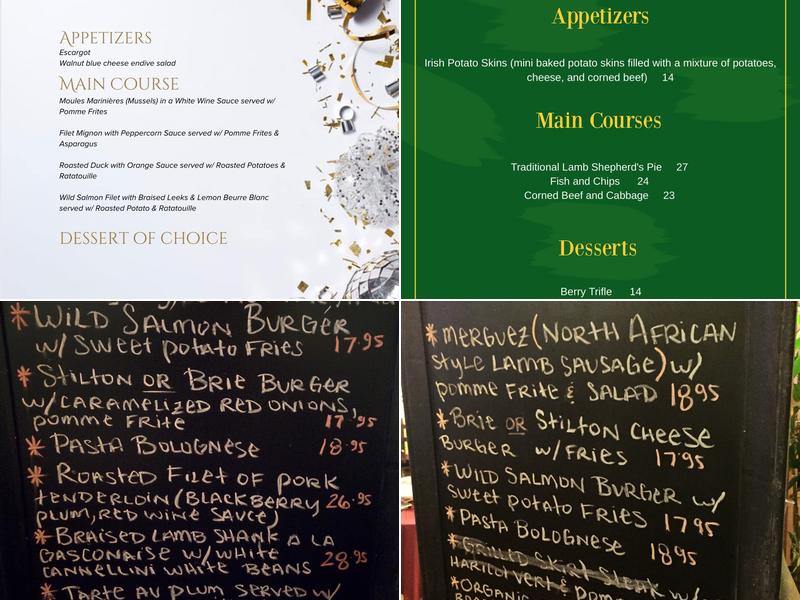 APPETIZERS
Escargot
Walnut blue cheese endive salad
MAIN COURSE
Moules Marinières (Mussels) in a White Wine Sauce served w/
Pomme Frites
Filet Mignon with Peppercorn Sauce served w/ Pomme Frites &
Asparagus
Roasted Duck with Orange Sauce served w/ Roasted Potatoes &
Ratatouille
Wild Salmon Filet with Braised Leeks & Lemon Beurre Blanc
served w/ Roasted Potato & Ratatouille
DESSERT OF CHOICE
Appetizers
Irish Potato Skins (mini baked potato skins filled with a mixture of potatoes,
cheese, and corned beef) 14
Main Courses
Traditional Lamb Shepherd's Pie 27
Fish and Chips 24
Corned Beef and Cabbage 23
Desserts
Berry Trifle 14
* WILD SALMON BURGER
w/ Sweet potato FRIES 17.95
* STILTON OR BRIE BURGER
w/CARAMELIZED RED ONIONS,
pomme FRITE 17.95
* PASTA BOLOGNESE 18.95
* ROASTED FILET OF PORK
tENDERLOIN (BLACKBERRY 26.95
PLUM, RED WINE SAUCE)
* BRAISED LAMB SHANK A LA
GASCONAISE w/ WHITE
CANNELLINI WHITE BEANS 28.95
* TARTE AU PLUM SERVED w/
* merguez (NORTH AFRICAN
Style LAMB SAUSAGE) w/
pomme FRITE & SALAD 1895
* Brie OR STILTON CHEESE
BURGER w/FRIES 17.95
* WILD SALMON BURGER w/
Sweet potato FRIES 17 95
* PASTA BOLOGNESE 1895
* GRILLED SKIRT Steak w/
HARICOT VERT & POMME
* ORGANIC